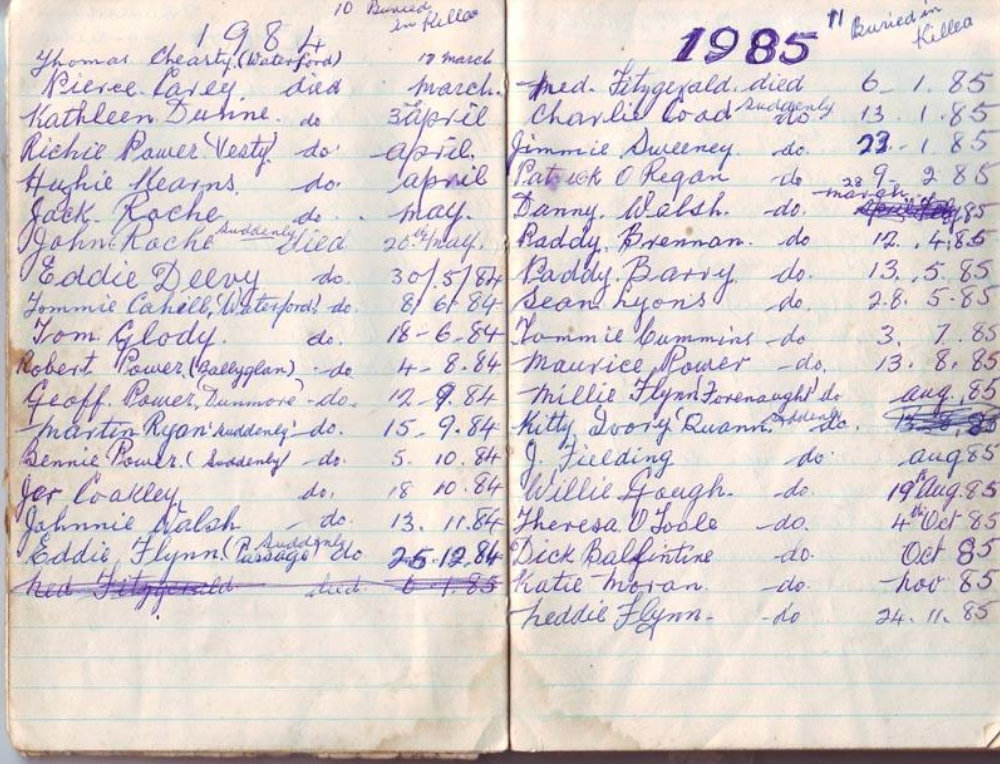 10 Buried
in Killea
1984
Thomas Chearty (Waterford) 17 march
Pierce Carey died march.
Kathleen Dunne. do 3 april
Richie Power 'Vesty' do april.
Hughie Kearns. do. april
Jack Roche do. may.
John Roche suddenly died 20th may.
Eddie Deevy do. 30/5/84
Tommie Cahill 'Waterford' do. 8/ 6/ 84.
Tom Glody. do. 18-6.84
Robert Power (Ballyglan) do. 4- 8.84
Geoff. Power, Dunmore do. 12-9.84
martin Ryan 'suddenly' do. 15-9.84
Bennie Power (Suddenly) do. 5. 10.84
Jer Coakley do. 18 10.84
Johnnie Walsh do. 13. 11.84
Eddie Flynn (Passage) Suddenly do 25.12.84
ned Fitzgerald died 6 1.85
11 Buried in
Killea
1985
ned. Fitzgerald. died 6 1.85
Charlie Coad suddenly do 13. 1.85
Jimmie Sweeney do. 23. 1.85
Patrick O Regan do 9. 2 85
Danny. Walsh. do. 28 march 85
Paddy. Brennan. do 12. .4.85
Paddy. Barry. do. 13. .5.85
Sean Lyons do. 28. 5.85
Tommie Cummins do 3. 7.85
maurice Power do. 13. 8.85
millie Flynn 'Forenaught' do aug. 85
Kitty 'Quann' suddenly do.
J. Fielding do. aug 85
Willie Gough. do. 19th Aug. 85
Theresa O Toole do. 4th Oct 85
Dick Balfintine do. Oct 85
Katie moran. do. nov 85
neddie Flynn. do 24. 11. 85